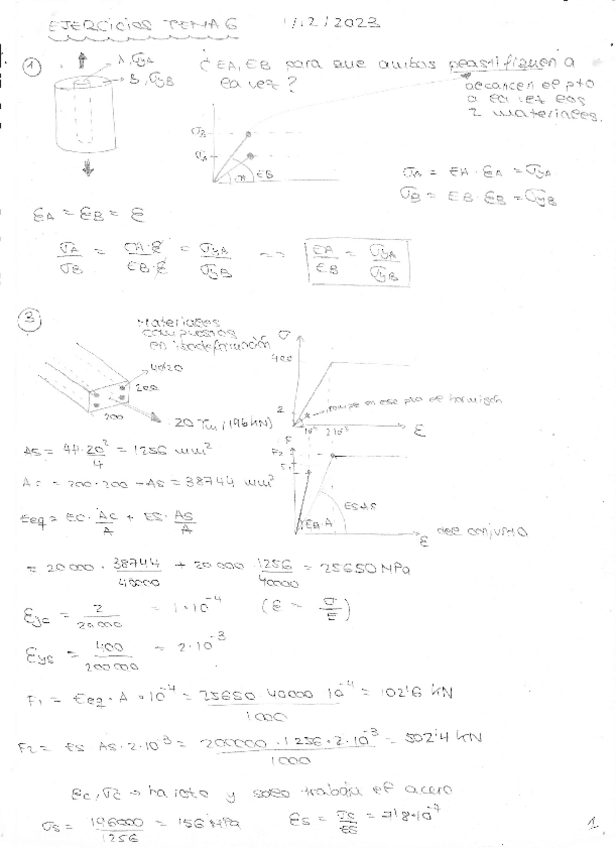 EJERCICIOS TEMA 6 1/12/2023
① A, σyA
B, σyB
¿EA, EB para que ambos plastifiquen a
la vez?
alcancen el pto
a la vez los
2 materiales.
σB
σA
EB
σA = EA · εA = σyA
σB = EB · εB = σyB
εA = εB = ε
σA/σB = EA·ε/EB·ε = σyA/σyB => EA/EB = σyA/σyB
③ Materiales
compuestos
en isodeformación
4∅20
200
200
20 Tn (196 kN)
σ
400
2
rompe en ese pto el hormigón
10⁻⁴ 2·10⁻³ ε
F
F2
F1
ES·AS
Eeq·A
ε del conjunto
AS = 4π·20²/4 = 1256 mm²
Ac = 200·200 - AS = 38744 mm²
Eeq = EC · AC/A + ES · AS/A
= 20000 · 38744/40000 + 20000 · 1256/40000 = 25650 MPa
εyc = 2/20000 = 1·10⁻⁴ (ε = σ/E)
εys = 400/200000 = 2·10⁻³
F1 = Eeq · A · 10⁻⁴ = 25650 · 40000 · 10⁻⁴/1000 = 102'6 kN
F2 = ES · AS · 2·10⁻³ = 200000 · 1256 · 2·10⁻³/1000 = 502'4 kN
εc, σc → ha roto y solo trabaja el acero
σs = 196000/1256 = 156 MPa εs = σs/ES =
1